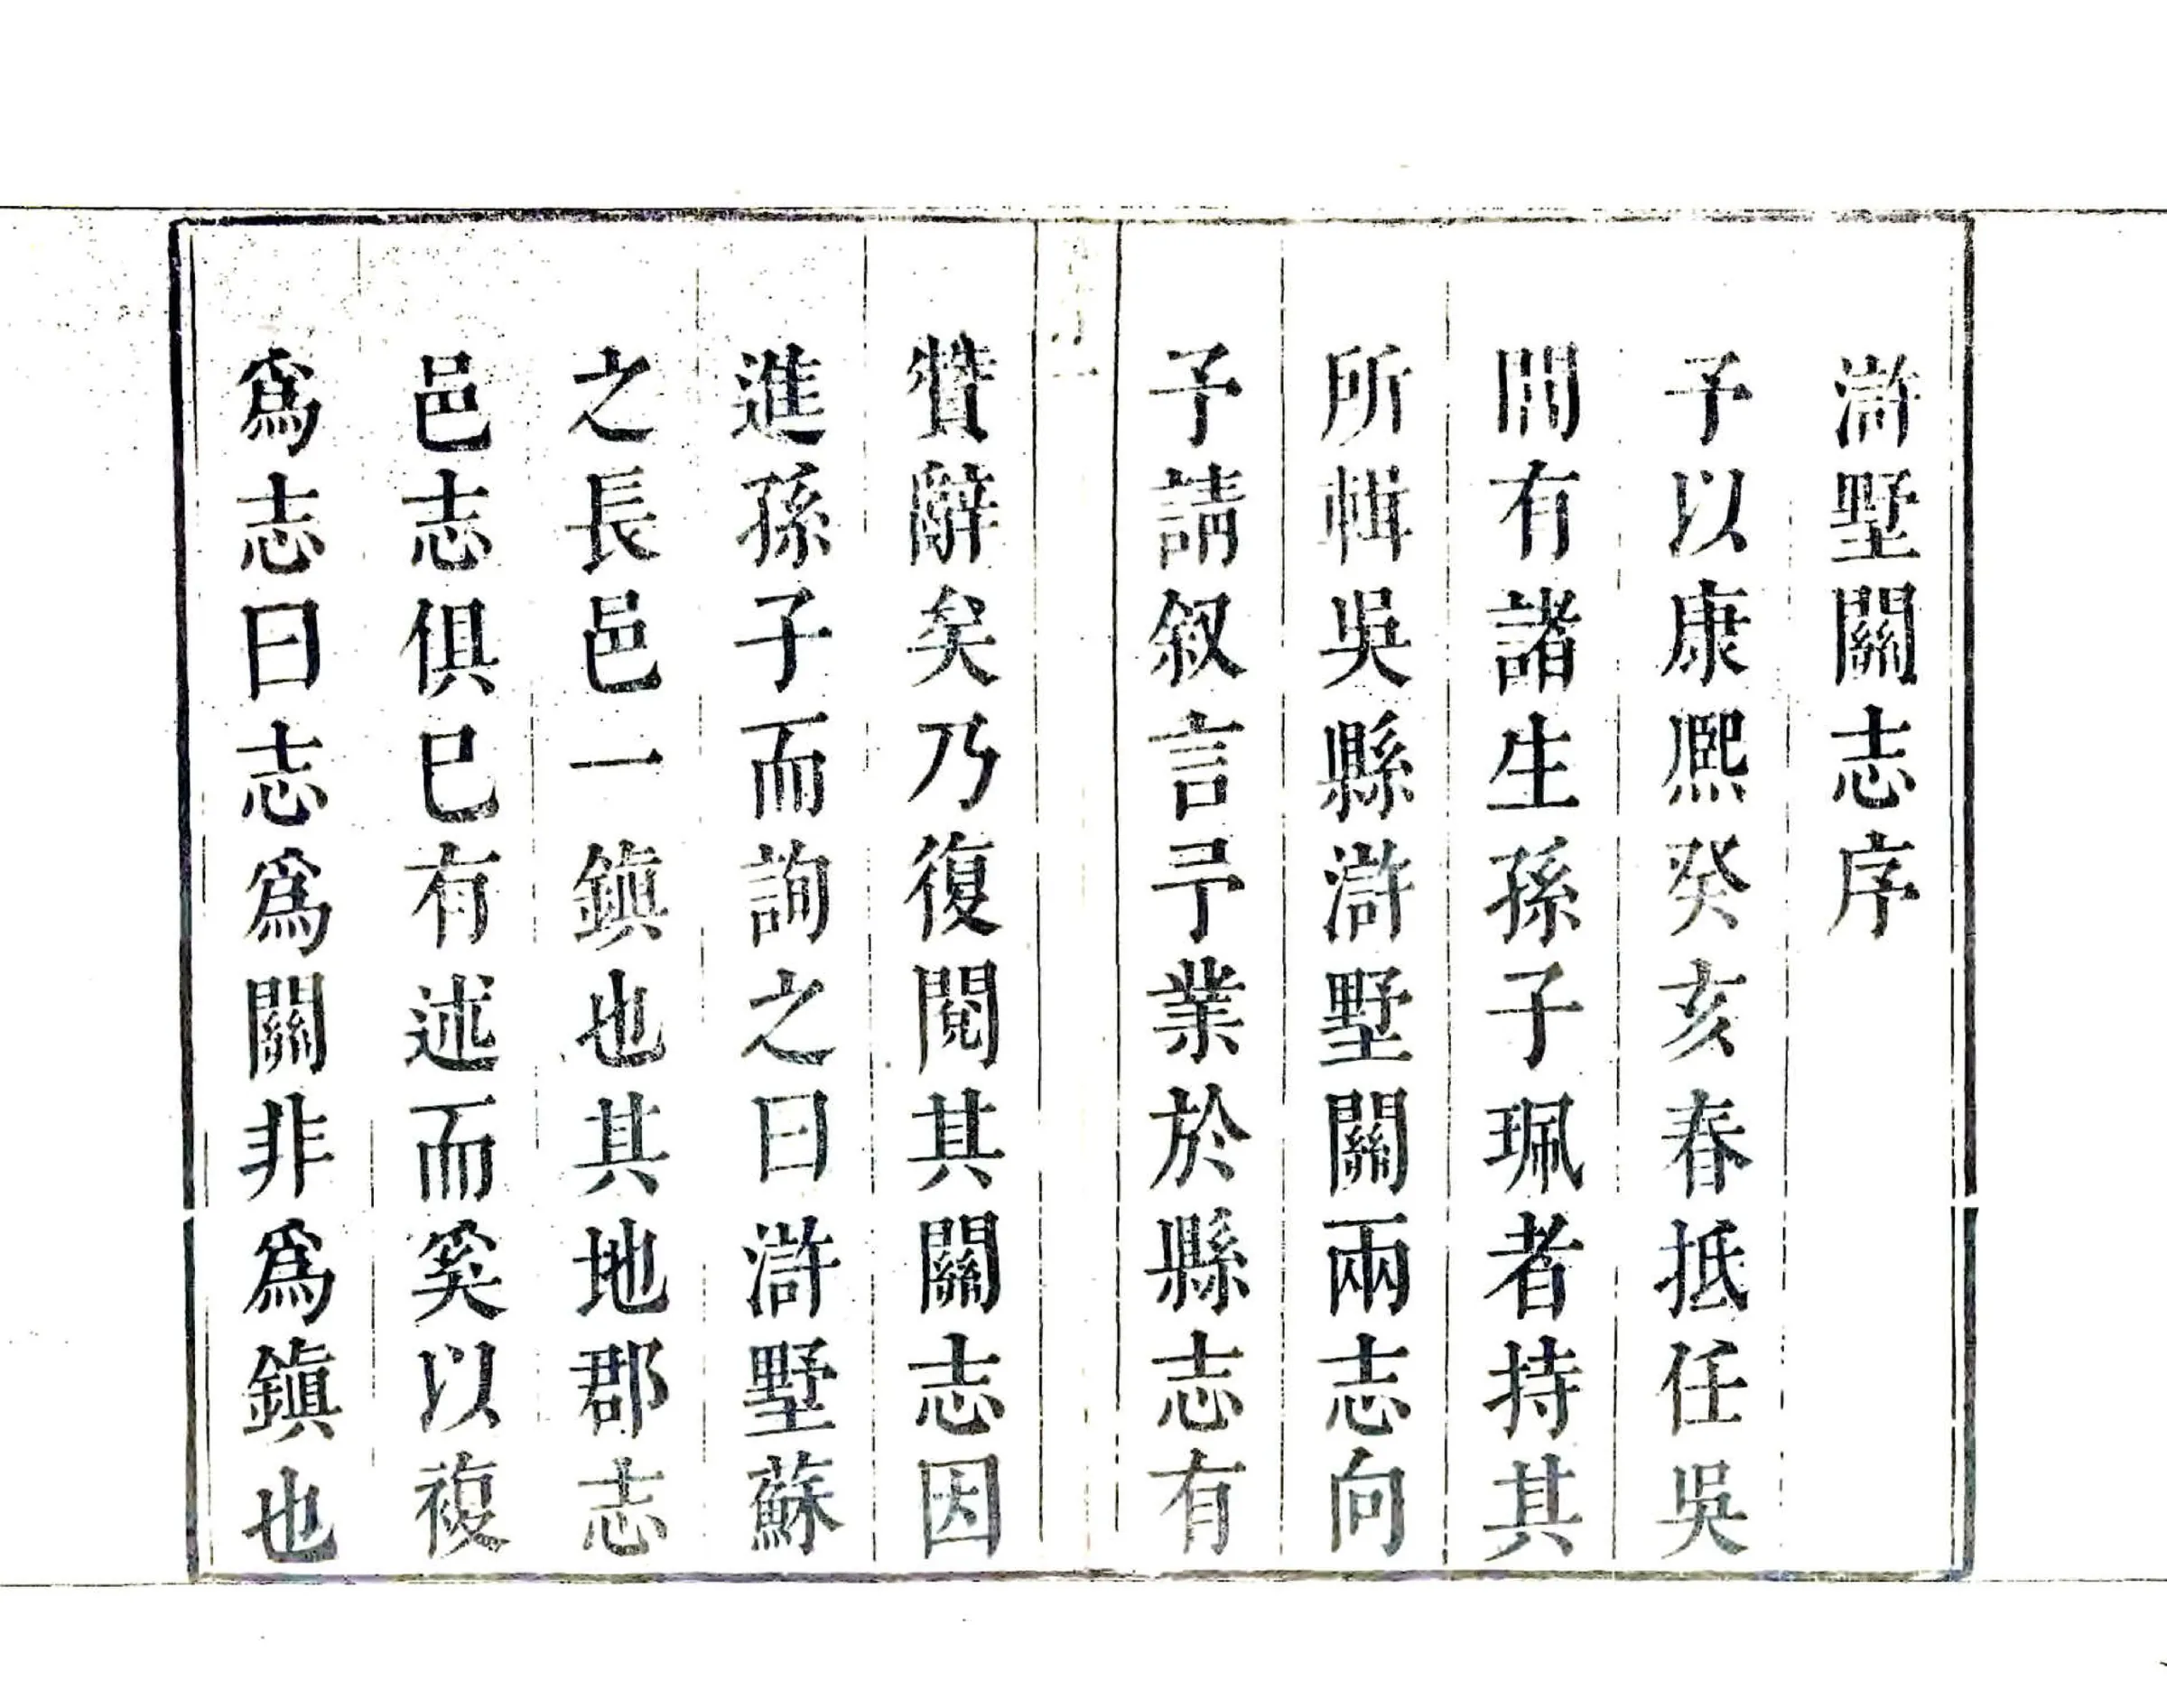 滸墅關志序
予以康熈癸亥春抵任吳
閶有諸生孫子珮者持其
所輯吳縣滸墅關兩志向
予請叙言予業於縣志有
贊辭矣乃復閱其關志因
進孫子而詢之曰滸墅蘇
之長邑一鎮也其地郡志
邑志俱巳有述而奚以複
爲志曰志爲關非爲鎮也